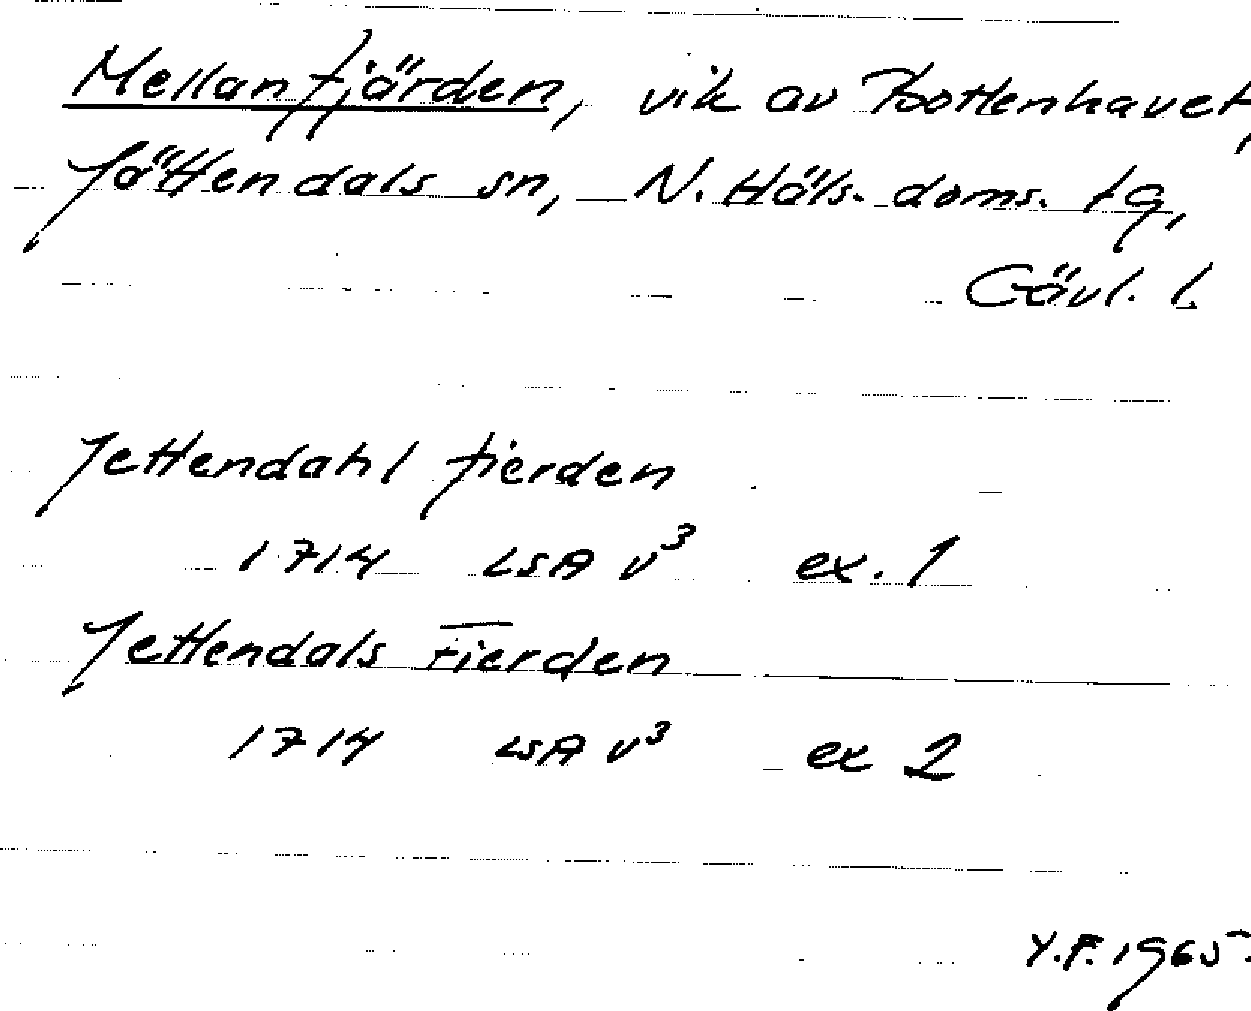 Mellanfjärden, vik av Bottenhavet,
Jättendals sn, N. Häls. doms. tg,
Gävl. l.
Jettendahl fierden
1714 LSA v³ ex. 1
Jettendals Fierden
1714 LSA v³ ex 2
Y.F. 1965.